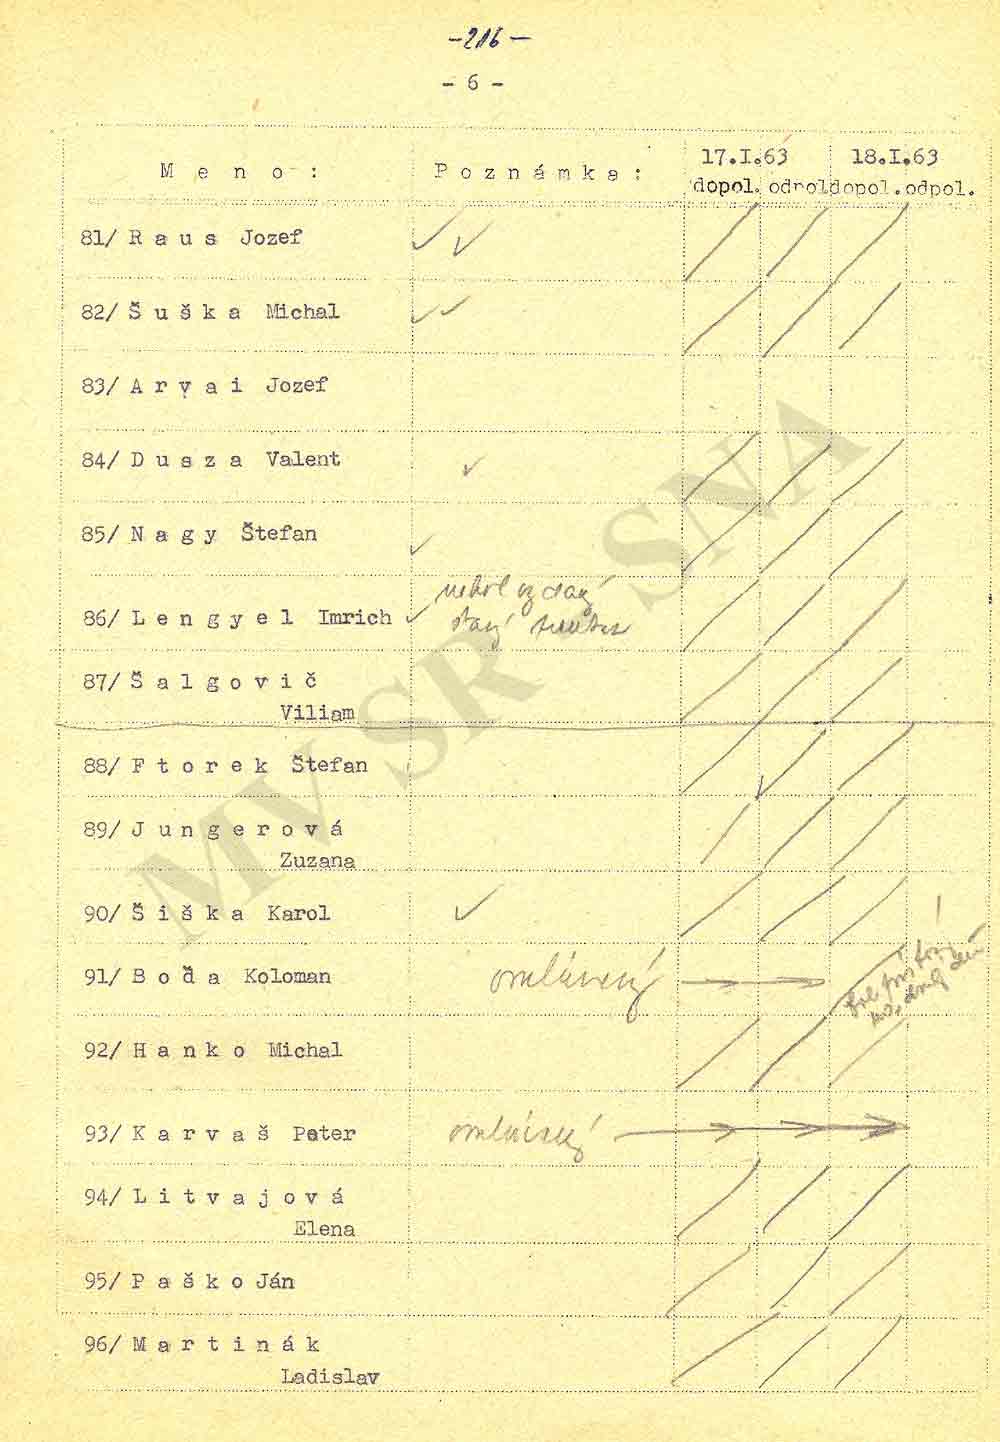 -216-
- 6 -
M e n o : P o z n á m k a : 17.I.63 18.I.63
dopol. odpol. dopol. odpol.
81/ R a u s Jozef
82/ Š u š k a Michal
83/ A r v a i Jozef
84/ D u s z a Valent
85/ N a g y Štefan
86/ L e n g y e l Imrich
starý
87/ Š a l g o v i č
Viliam
88/ F t o r e k Štefan
89/ J u n g e r o v á
Zuzana
90/ Š i š k a Karol
91/ B o ď a Koloman omluvený
92/ H a n k o Michal
93/ K a r v a š Peter omluvený
94/ L i t v a j o v á
Elena
95/ P a š k o Ján
96/ M a r t i n á k
Ladislav
MV SR SNA